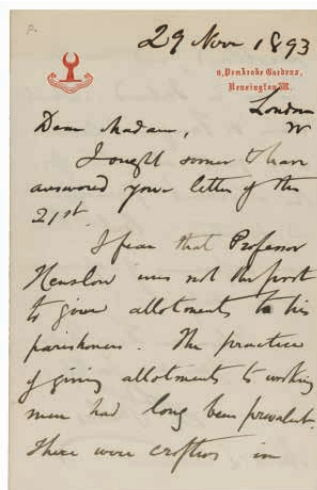 29 Nov 1893
Pembroke Gardens,
Kensington, W.
London
W
Dear Madam,
I ought sooner to have
answered your letter of the
21st.
I fear that Professor
Henslow was not the first
to give allotments to his
parishoners. The practice
of giving allotments to working
men had long been prevalent.
There were crofters in